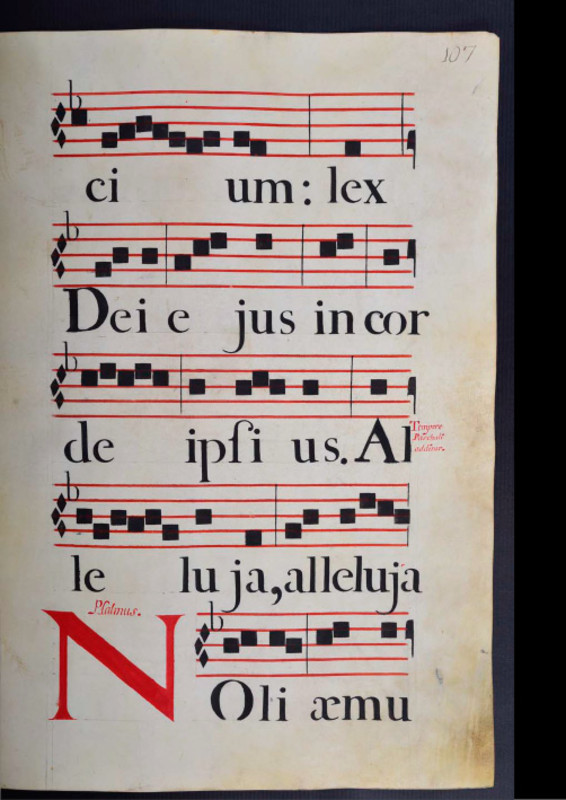 107
ci um: lex
Dei e jus in cor
de ipſi us. Al
Tempore
Paschali
additur.
le lu ja, alleluja
Psalmus.
N
Oli æmu